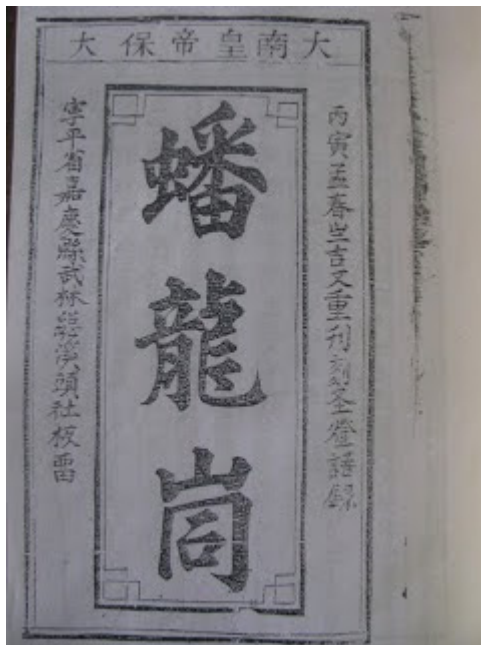 大南皇帝保大
丙寅孟春㞢吉又重刊刻圣燈語錄
蟠龍峝
寧平省嘉慶縣武林總溪頭社板畱